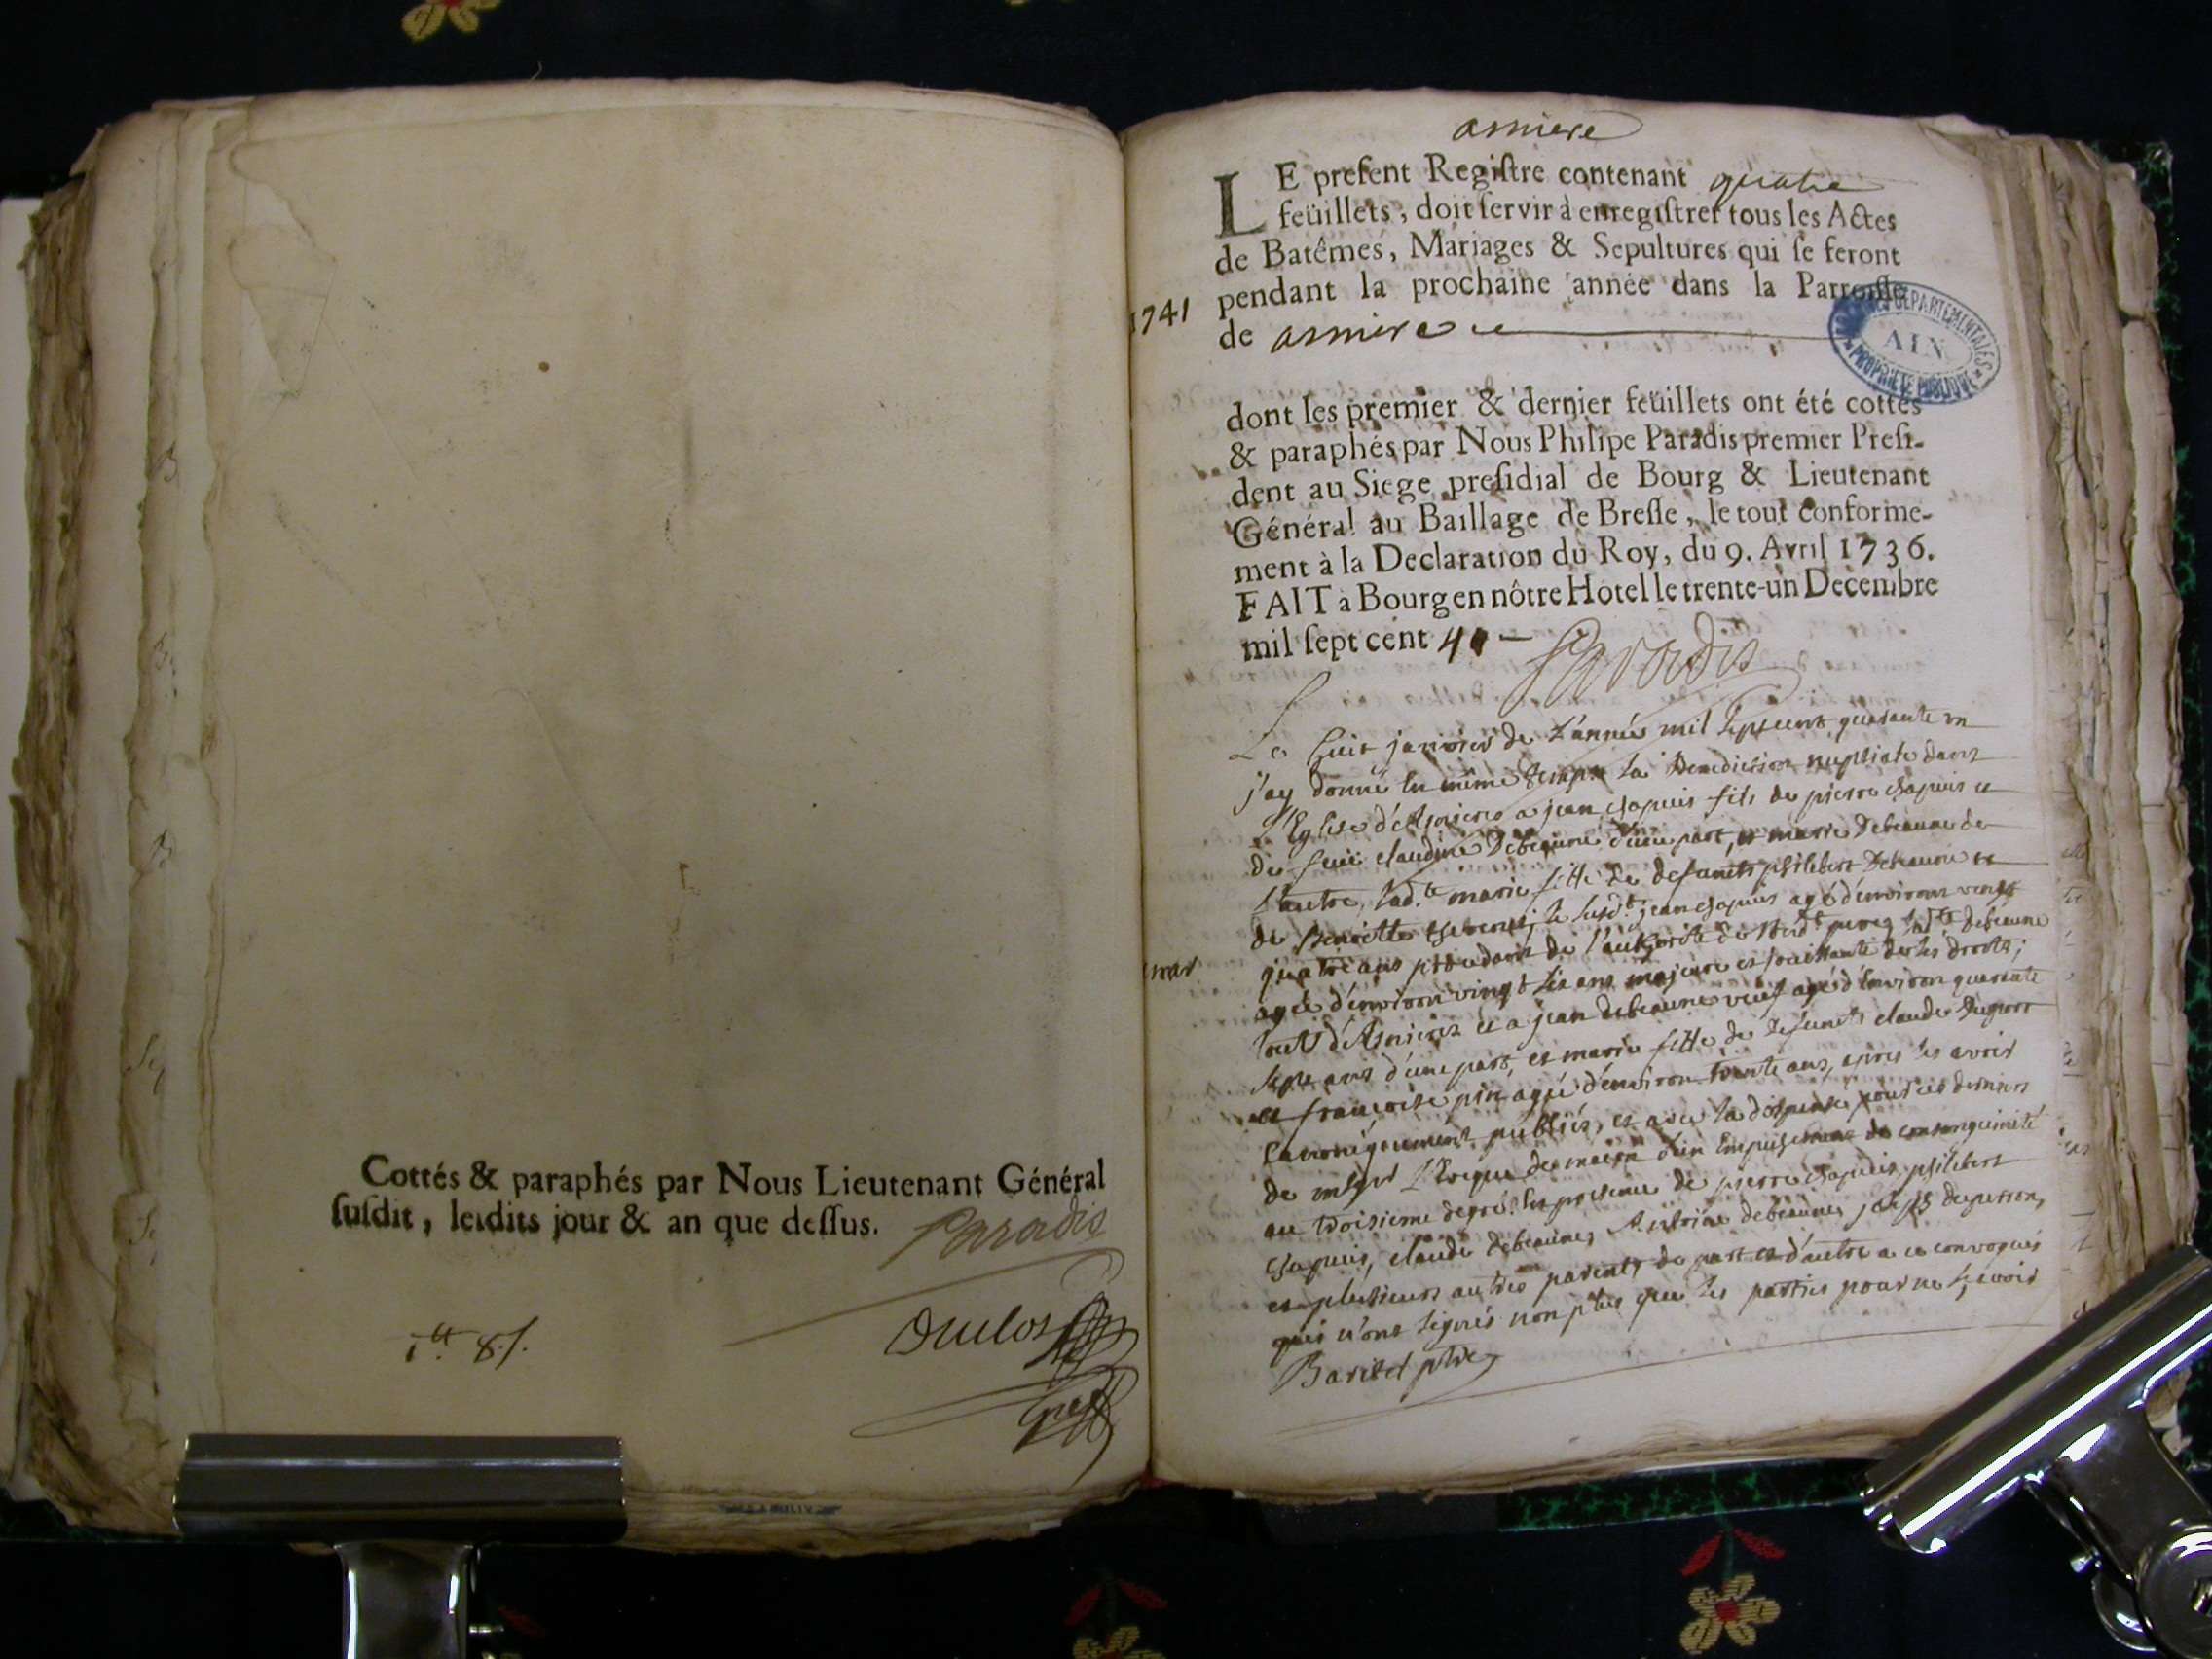 Cottés & paraphés par Nous Lieutenant Général
ſuſdit, leſdits jour & an que deſſus. Paradis
Duclos
Greff
1ᵗᵗ 8ſ.
asniere
LE preſent Regiſtre contenant quatre
feüillets, doit ſervir à enregiſtrer tous les Actes
de Batêmes, Mariages & Sepultures qui ſe feront
1741 pendant la prochaine année dans la Parroiſſe
de asniere
ARCHIVES DEPARTEMENTALES
AIN
PROPRIETE PUBLIQUE
dont les premier & dernier feüillets ont été cottés
& paraphés par Nous Philipe Paradis premier Preſi-
dent au Siege preſidial de Bourg & Lieutenant
Général au Baillage de Breſſe, le tout conforme-
ment à la Declaration du Roy, du 9. Avril 1736.
FAIT à Bourg en nôtre Hôtel le trente-un Decembre
mil ſept cent 40 Paradis
Le huit janvier de l'année mil septcent quarante un
j'ay donné en même temps la Benediction nuptiale dans
l'Eglise d'Asnieres a jean chapuis fils de pierre chapuis et
de feue claudine Debeaune d'une part, et marie Debeaune de
l'autre, lad.te marie fille de defunts philibert Debeaune et
de Benoitte le susd.t jean chapuis agé d'environ vingt
quatre ans de l'authorité de sond.t pere, lad.te debeaune
mar agée d'environ vingt six ans majeure et jouissante de ses droits;
tous d'Asnieres et a jean debeaune veuf agé d'environ quarante
sept ans d'une part, et marie fille de defunts claude Dugour
et francoise pin agée d'environ trente ans, apres les avoir
canoniquement publiés, et avec la dispense pour ces derniers
de mgr L'Evéque de macon d'un Empechement de consanguinité
au troisieme degré. En presence de pierre chapuis, philibert
chapuis, claude debeaune, Antoine debeaune,
et plusieurs autres parents de part et d'autre a ce convoqués
qui n'ont signés non plus que les parties pour ne sçavoir
Baritel ptre